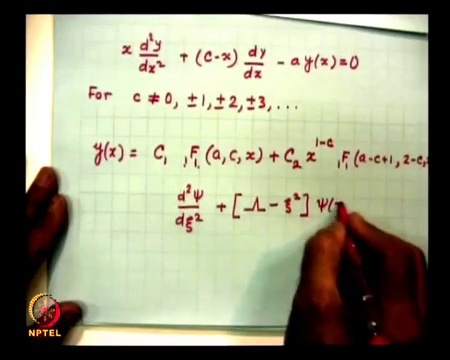 x d²y/dx² + (c-x) dy/dx - a y(x) = 0
For c ≠ 0, ±1, ±2, ±3, ...
y(x) = C₁ ₁F₁(a, c, x) + C₂ x^(1-c) ₁F₁(a-c+1, 2-c,
d²Ψ/dξ² + [Λ - ξ²] Ψ(
NPTEL